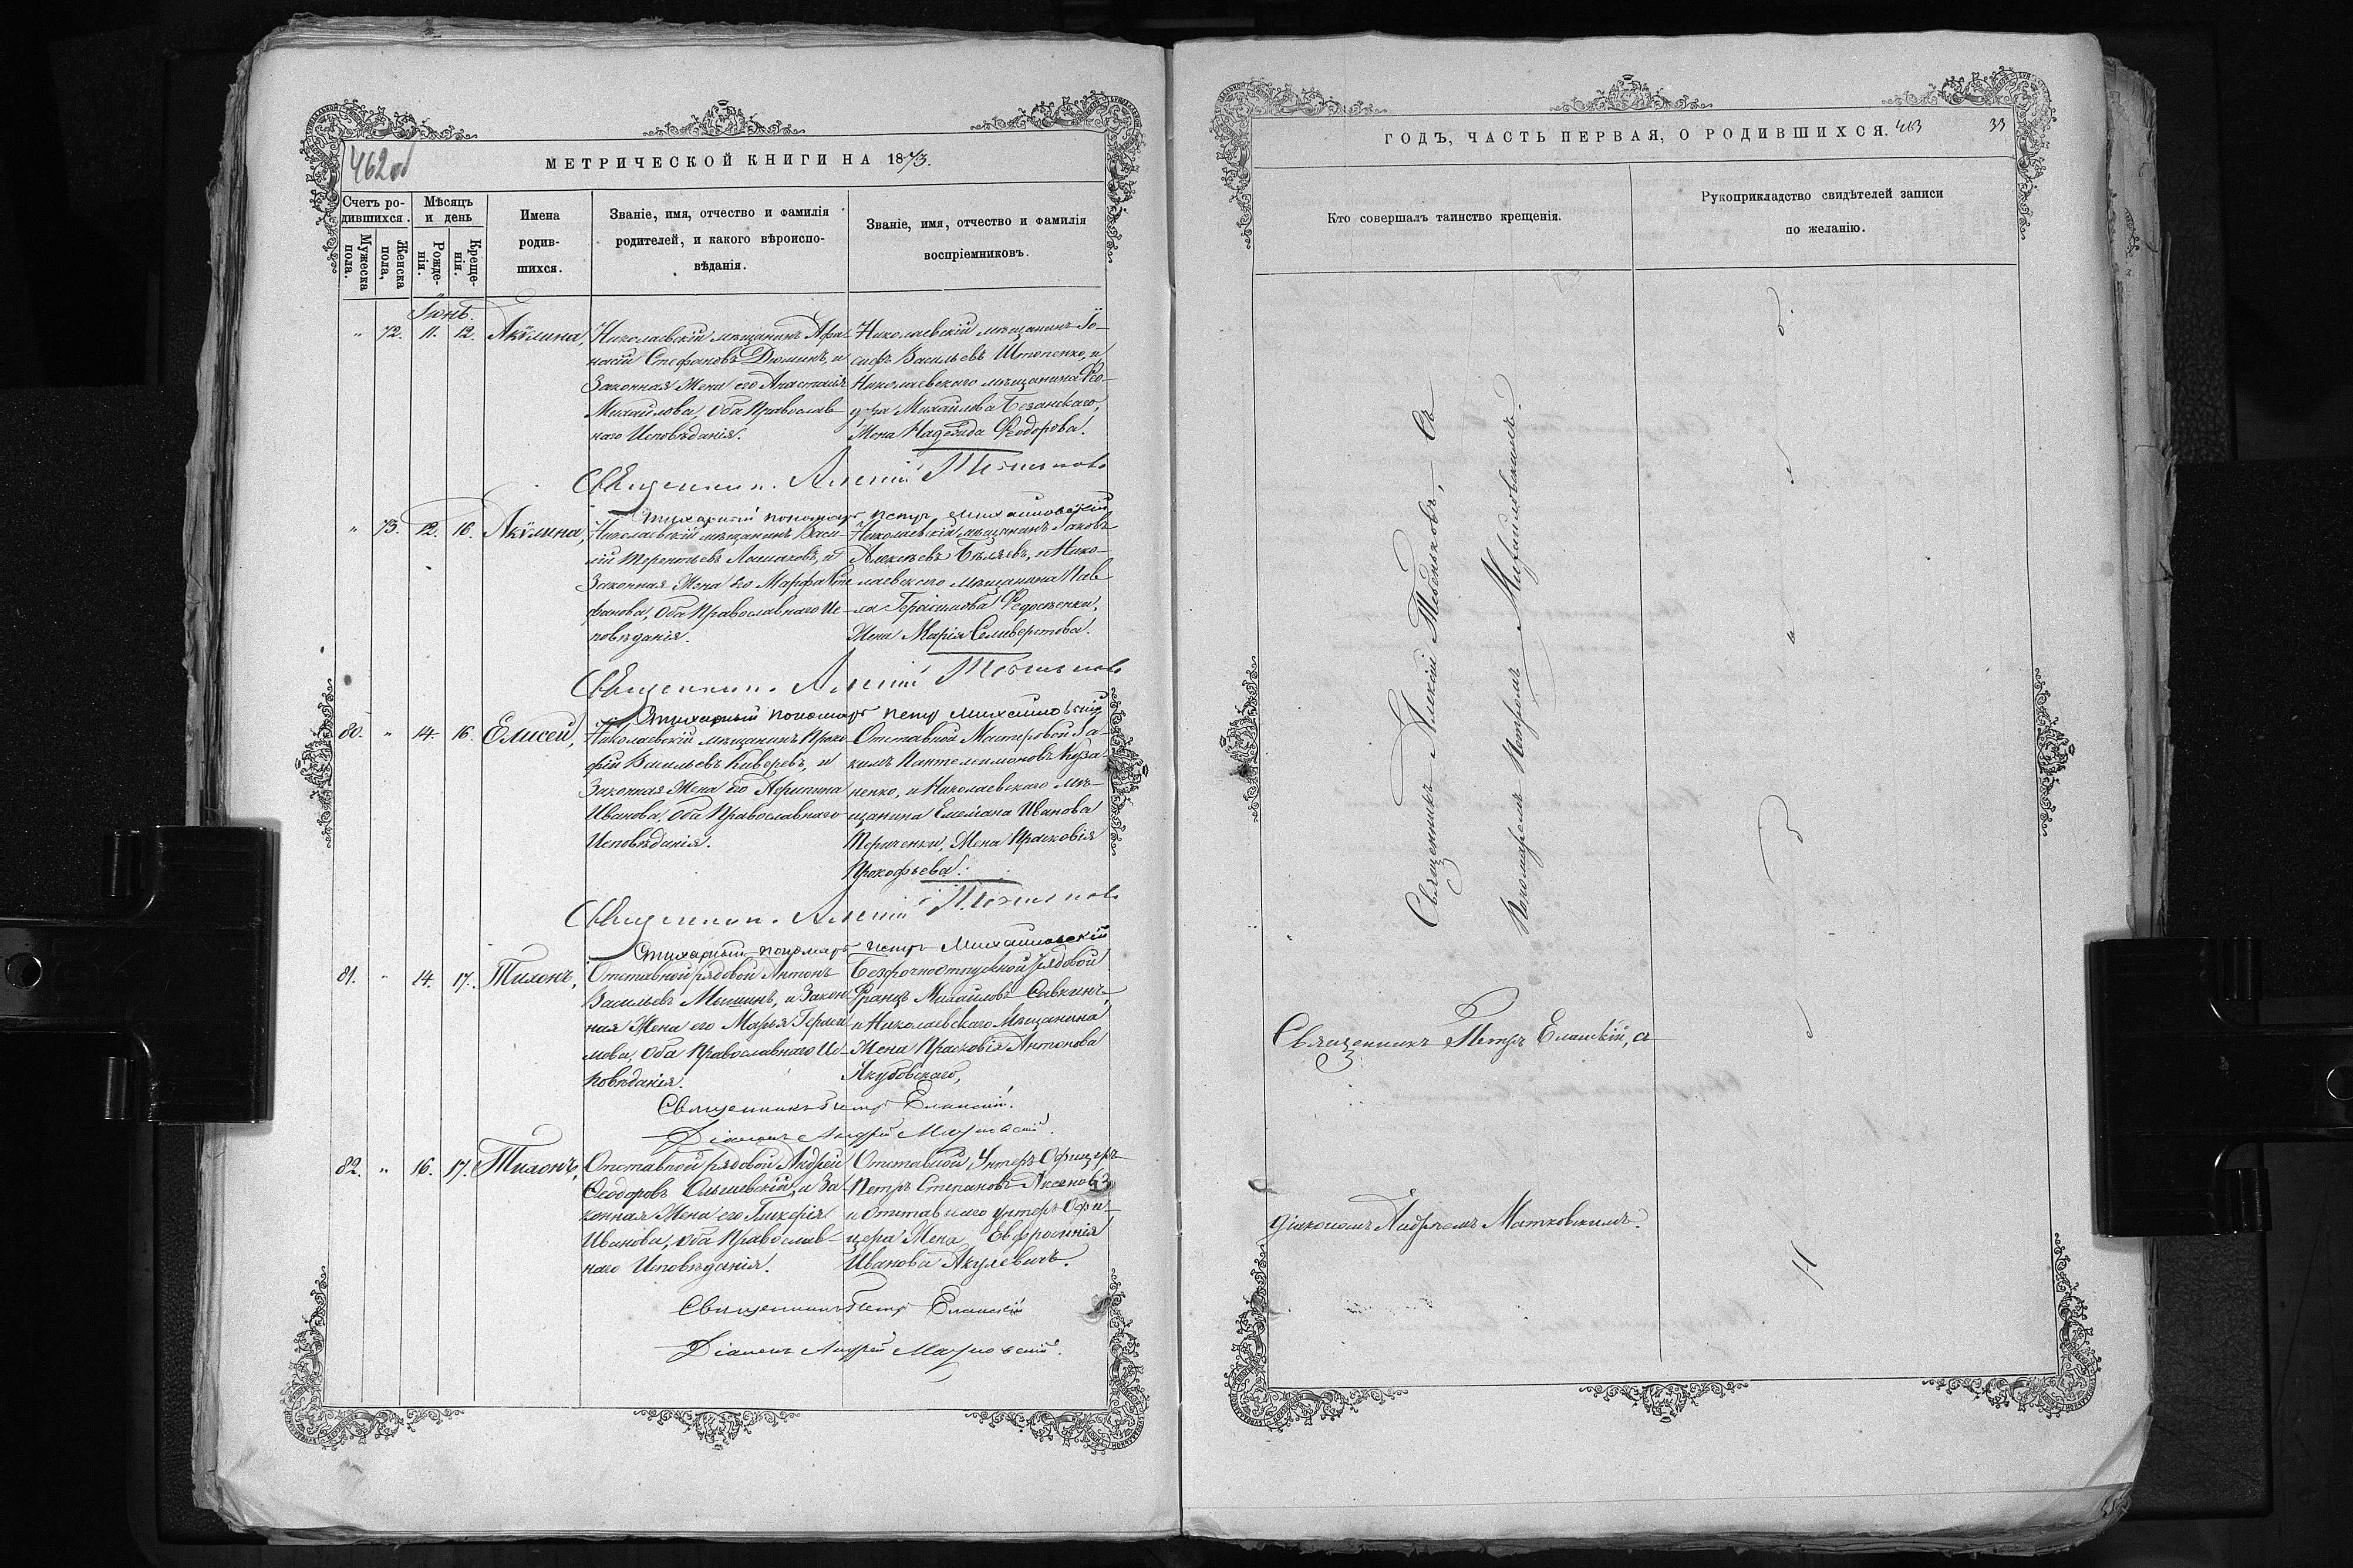 462 об
МЕТРИЧЕСКОЙ КНИГИ НА 1873.
Счетъ ро-
дившихся.
Мужеска
пола.
Женска
пола,
Мѣсяцъ
и день
Рожде-
нія.
Креще-
нія.
Имена
родив-
шихся.
Званіе, имя, отчество и фамилія
родителей, и какого вѣроиспо-
вѣданія.
Званіе, имя, отчество и фамилія
воспріемниковъ.
Іюнь.
" 72. 11. 12. Акулина,
Николаевскій мѣщанинъ Афа-
насій Стефановъ Дюминъ, и
Законная Жена его Анастасія
Михайлова, Оба Православ-
наго Исповѣданія.
Николаевскій мѣщанинъ Іо-
сифъ Васильевъ Штопенко, и
Николаевскаго мѣщанина Ѳео-
дора Михайлова
Жена Надежда Ѳеодорова.
Священник. Алексій Тебеньковъ
Стихарный пономарь Петръ Михайловскій
" 73. 12. 16. Акулина,
Николаевскій мѣщанинъ Васи-
лій Терентьевъ и
Законная Жена Его Марфа Сте-
фанова, Оба Православнаго Ис-
повѣданія.
Николаевскій мѣщанинъ Іаковъ
Алексѣевъ Бѣляевъ, и Нико-
лаевскаго мѣщанина Пав-
ла Герасимова Ѳедосѣенки,
Жена Марія Селиверстова.
Священник. Алексій Тебеньковъ
Стихарный пономарь Петръ Михайловскій
80. " 14. 16. Елисей,
Николаевскій мѣщанинъ Проко-
фій Васильевъ Киверевъ, и
Законная Жена Его Агрипина
Иванова, Оба Православнаго
Исповѣданія.
Отставной Мастеровой Іа-
кимъ Пантелеимоновъ Куза-
ненко, и Николаевскаго мѣ-
щанина Емельяна Иванова
Жена Прасковія
Прокофьева.
Священник. Алексій Тебеньковъ
Стихарный пономарь Петръ Михайловскій
81. " 14. 17. Тихонъ,
Отставной рядовой Антонъ
Васильевъ Мишинъ, и Закон-
ная Жена его Марья Гераси-
мова, Оба Православнаго Ис-
повѣданія.
Безсрочноотпускной рядовой
Францъ Михайловъ Савкинъ,
и Николаевскаго Мѣщанина
Жена Прасковія Антонова
Якубовскаго,
Священникъ Петръ Еланскій.
Діаконъ Андрей Матковскій.
82. " 16. 17. Тихонъ,
Отставной рядовой Андрей
Ѳеодоровъ Ольшевскій, и За-
конная Жена его Гликерія
Иванова, Оба Православ-
наго Исповѣданія.
Отставной Унтеръ Офицеръ
Петръ Степановъ Аксеновъ
и Отставнаго унтеръ Офи-
цера Жена Евфросинія
Иванова Акулевичъ.
Священникъ Петръ Еланскій
Діаконъ Андрей Матковскій.
ГОДЪ, ЧАСТЬ ПЕРВАЯ, О РОДИВШИХСЯ. 463
Кто совершалъ таинство крещенія.
Рукоприкладство свидѣтелей записи
по желанію.
Священникъ Алексій Тебеньковъ, Съ
Пономаремъ Петромъ Михайловскимъ.
Священникъ Петръ Еланскій, съ
діакономъ Андреемъ Матковскимъ.